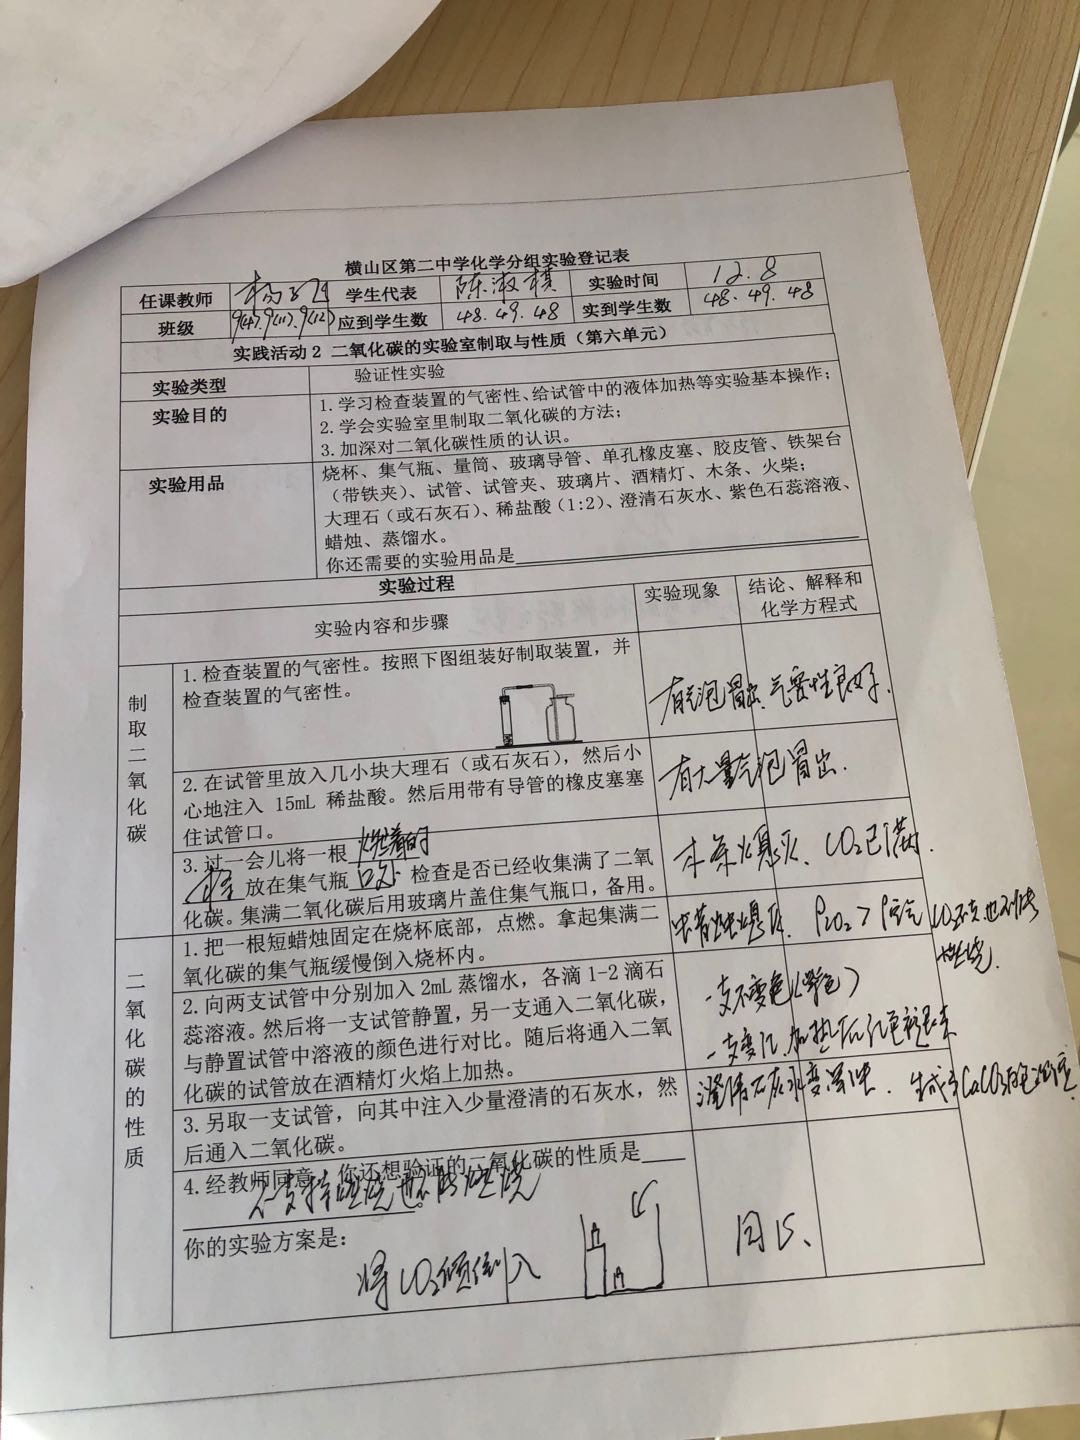 横山区第二中学化学分组实验登记表
任课教师 学生代表 陈淑棋 实验时间 12.8
班级 9(4).9(11).9(12) 应到学生数 48.49.48 实到学生数 48.49.48
实践活动2 二氧化碳的实验室制取与性质（第六单元）
实验类型 验证性实验
实验目的 1.学习检查装置的气密性、给试管中的液体加热等实验基本操作；
2.学会实验室里制取二氧化碳的方法；
3.加深对二氧化碳性质的认识。
实验用品 烧杯、集气瓶、量筒、玻璃导管、单孔橡皮塞、胶皮管、铁架台
（带铁夹）、试管、试管夹、玻璃片、酒精灯、木条、火柴；
大理石（或石灰石）、稀盐酸（1:2）、澄清石灰水、紫色石蕊溶液、
蜡烛、蒸馏水。
你还需要的实验用品是
实验过程
实验内容和步骤 实验现象 结论、解释和
化学方程式
制取二氧化碳
1.检查装置的气密性。按照下图组装好制取装置，并
检查装置的气密性。
有气泡冒出 气密性良好.
2.在试管里放入几小块大理石（或石灰石），然后小
心地注入 15mL 稀盐酸。然后用带有导管的橡皮塞塞
住试管口。
有大量气泡冒出.
3.过一会儿将一根 燃着的
木条 放在集气瓶 口处 检查是否已经收集满了二氧
化碳。集满二氧化碳后用玻璃片盖住集气瓶口，备用。
木条熄灭. CO₂已满.
二氧化碳的性质
1.把一根短蜡烛固定在烧杯底部，点燃。拿起集满二
氧化碳的集气瓶缓慢倒入烧杯内。
蜡烛熄灭. ρCO₂>ρ空气
燃烧.
2.向两支试管中分别加入2mL蒸馏水，各滴1-2滴石
蕊溶液。然后将一支试管静置，另一支通入二氧化碳，
与静置试管中溶液的颜色进行对比。随后将通入二氧
化碳的试管放在酒精灯火焰上加热。
一支不变色(紫色)
一支变红.加热后红色褪去
3.另取一支试管，向其中注入少量澄清的石灰水，然
后通入二氧化碳。
澄清石灰水变浑浊. 生成了CaCO₃白色沉淀.
4.经教师同意，你还想验证的二氧化碳的性质是
不支持燃烧也不能燃烧
你的实验方案是：
将CO₂倾倒入
同1.